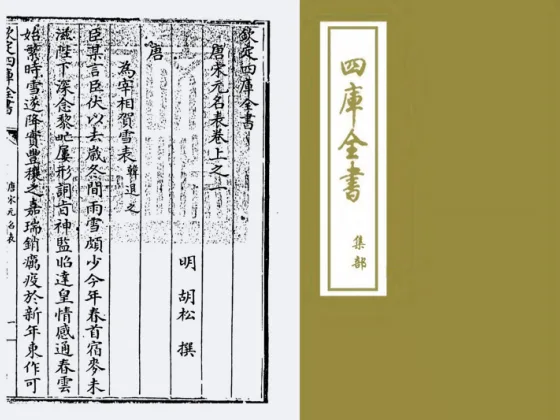 欽定四庫全書
唐宋元名表卷上之一
明 胡松 撰
唐
為宰相賀雪表 韓退之
臣某言臣伏以去歲冬間雨雪頗少今年春首宿麥未
滋陛下深念黎甿屢形詞㫖神監昭達皇情感通春雲
始繁時雪遂降實豐穰之嘉瑞銷癘疫於新年東作可
欽定四庫全書
唐宋元名表
一
四庫全書
集部